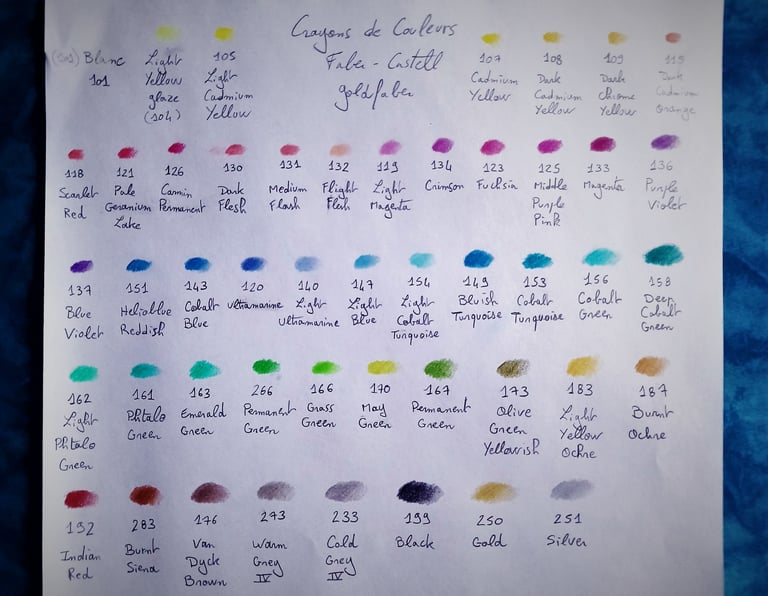 Crayons de Couleurs
Faber - Castell
goldfaber
Blanc
101
Light
Yellow
glaze
(104)
105
Light
Cadmium
Yellow
107
Cadmium
Yellow
108
Dark
Cadmium
Yellow
109
Dark
Chrome
Yellow
115
Dark
Cadmium
Orange
118
Scarlet
Red
121
Pale
Geranium
Lake
126
Carmin
Permanent
130
Dark
Flesh
131
Medium
Flash
132
Flight
Flesh
119
Light
Magenta
134
Crimson
123
Fuchsia
125
Middle
Purple
Pink
133
Magenta
136
Purple
Violet
137
Blue
Violet
151
Helioblue
Reddish
143
Cobalt
Blue
120
Ultramarine
140
Light
Ultramarine
147
Light
Blue
154
Light
Cobalt
Turquoise
149
Bluish
Turquoise
153
Cobalt
Turquoise
156
Cobalt
Green
158
Deep
Cobalt
Green
162
Light
Phtalo
Green
161
Phtalo
Green
163
Emerald
Green
266
Permanent
Green
166
Grass
Green
170
May
Green
167
Permanent
Green
173
Olive
Green
Yellowish
183
Light
Yellow
Ochre
187
Burnt
Ochre
192
Indian
Red
283
Burnt
Siena
176
Van
Dyck
Brown
273
Warm
Grey
IV
233
Cold
Grey
IV
199
Black
250
Gold
251
Silver